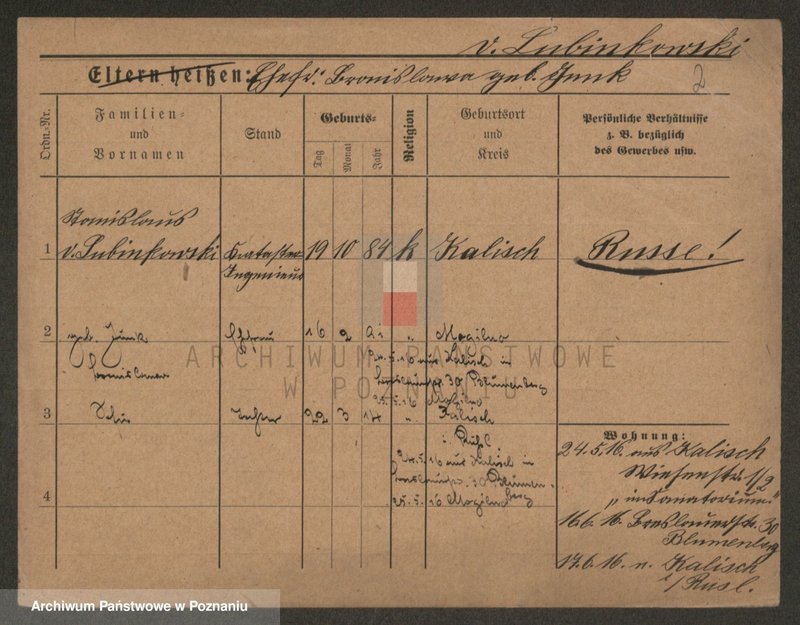 v. Lubinkowski
Eltern heißen: Ehefr: Bronislawa geb. Junk
2
Ordn.-Nr.
Familien-
und
Vornamen
Stand
Geburts-
Tag
Monat
Jahr
Religion
Geburtsort
und
Kreis
Persönliche Verhältnisse
z. B. bezüglich
des Gewerbes usw.
Stanislaus
1 v. Lubinkowski Kataster- 19 10 84 k Kalisch Russe!
Ingenieur
2 geb. Junk Ehefrau 16 2 " Mogilno
Bronislawa 24.5.16 aus Kalisch in
30 Blumenberg
25.5.16 Mogilno
3 Tochter 22 3 14 " Kalisch
i. Rußl.
24.5.16 aus Kalisch in
30 Blumen-
berg
4 25.5.16 Mogilno
Wohnung:
24.5.16. aus Kalisch
Wiesenstr. 1/2
„im Sanatorium"
16.6.16. Breslauerstr. 30
Blumenberg
17.6.16. n. Kalisch
i/Rusl.
ARCHIWUM PAŃSTWOWE
W POZNANIU
Archiwum Państwowe w Poznaniu